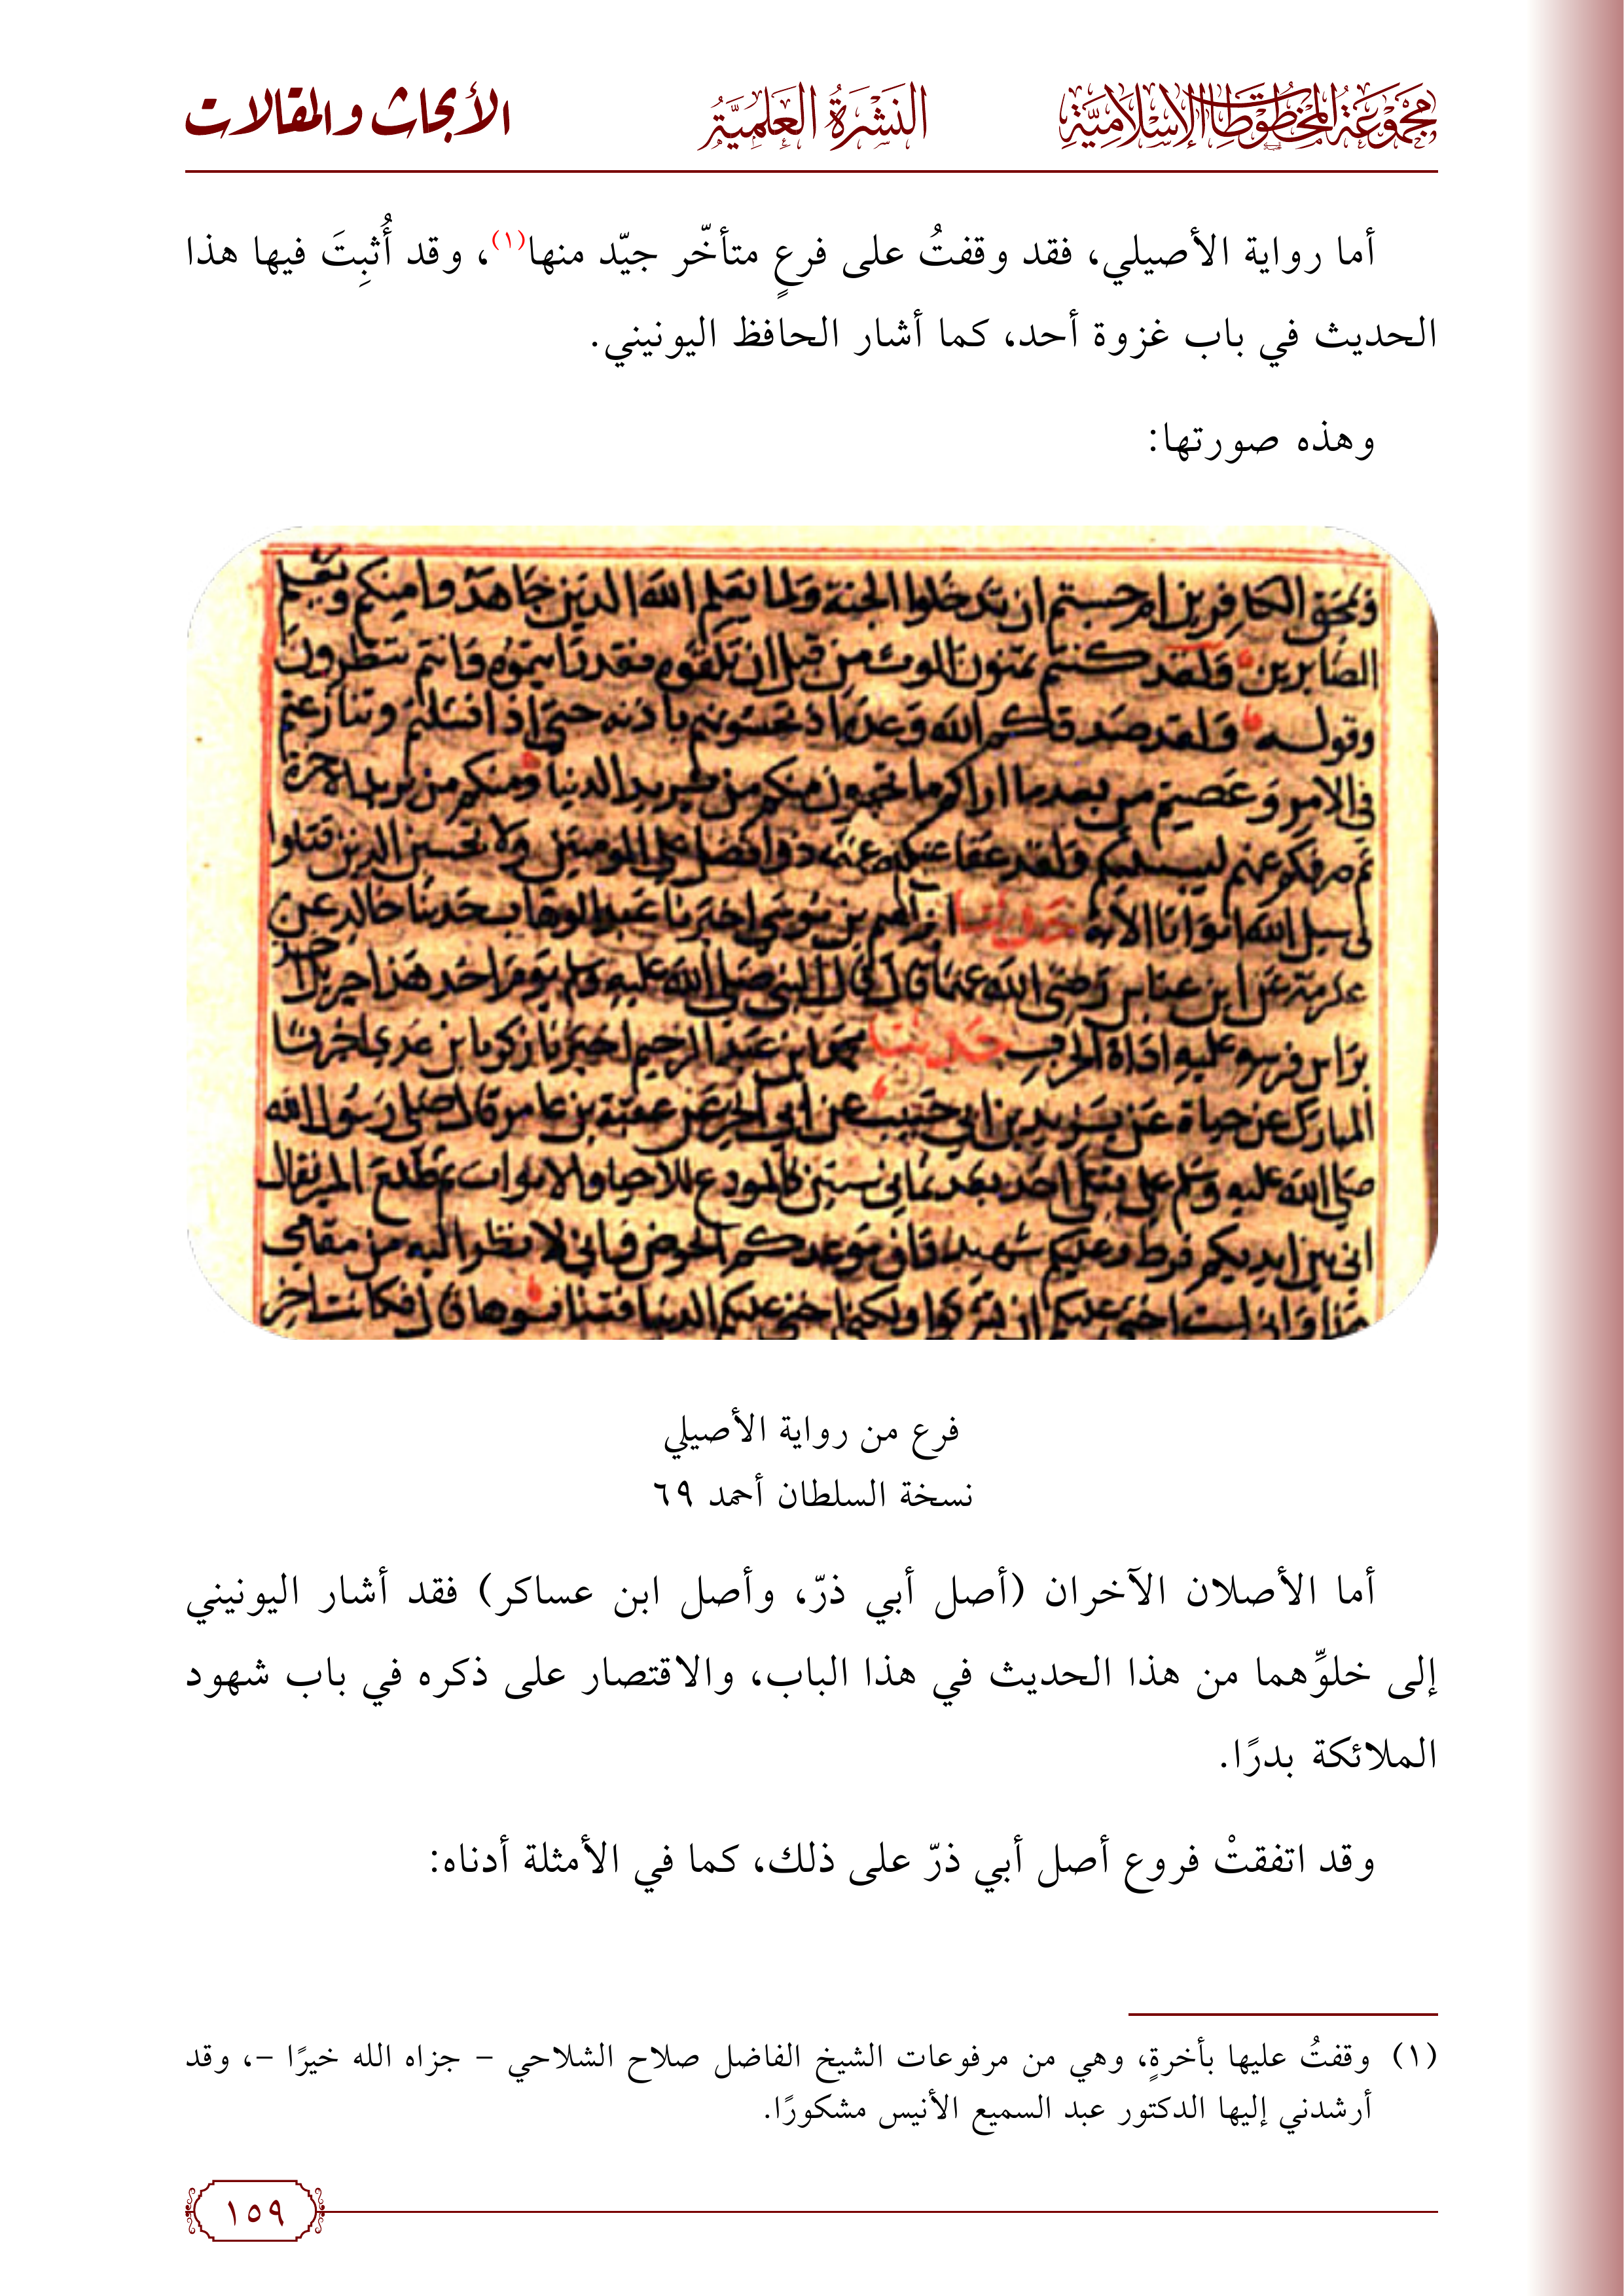 مجموعة المخطوطات الإسلامية
النَّشْرَةُ العِلْمِيَّةُ
الأبحاث والمقالات
أما رواية الأصيلي، فقد وقفتُ على فرعٍ متأخّر جيّد منها(١)، وقد أُثبِتَ فيها هذا
الحديث في باب غزوة أحد، كما أشار الحافظ اليونيني.
وهذه صورتها:
الكافرين ام حسبتم ان تدخلوا الجنة ولما يعلم الله الذين جاهدوا منكم ويعلم
الصابرين ولقد كنتم تمنون الموت من قبل ان تلقوه فقد رايتموه وانتم تنظرون
وقوله ولقد صدقكم الله وعده اذ تحسونهم باذنه حتى اذا فشلتم وتنازعتم
في الامر وعصيتم من بعد ما اراكم ما تحبون منكم من يريد الدنيا ومنكم من يريد الاخرة
ثم صرفكم عنهم ليبتليكم ولقد عفا عنكم ذو فضل على المومنين ولا تحسبن الذين قتلوا
في سبيل الله امواتا الآية حدثنا ابراهيم بن موسى اخبرنا عبد الوهاب حدثنا خالد عن
عكرمة عن ابن عباس رضي الله عنهما قال قال النبي صلى الله عليه وسلم يوم احد هذا جبريل اخذ
براس فرسه عليه اداة الحرب حدثنا محمد بن عبد الرحيم اخبرنا زكريا بن عدي اخبرنا
المبارك عن حياة عن يزيد بن ابي حبيب عن ابي الخير عن عقبة بن عامر قال صلى رسول الله
صلى الله عليه وسلم على قتلى احد بعد ثماني سنين كالمودع للاحيا والاموات ثم طلع المنبر فقال
اني بين ايديكم فرط وعليكم شهيد وان موعدكم الحوض واني لانظر اليه من مقامي
هذا واني لست اخشى عليكم ان تشركوا ولكني اخشى عليكم الدنيا ان تنافسوها قال فكانت اخر
فرع من رواية الأصيلي
نسخة السلطان أحمد ٦٩
أما الأصلان الآخران (أصل أبي ذرّ، وأصل ابن عساكر) فقد أشار اليونيني
إلى خلوِّهما من هذا الحديث في هذا الباب، والاقتصار على ذكره في باب شهود
الملائكة بدرًا.
وقد اتفقتْ فروع أصل أبي ذرّ على ذلك، كما في الأمثلة أدناه:
(١) وقفتُ عليها بأخرةٍ، وهي من مرفوعات الشيخ الفاضل صلاح الشلاحي – جزاه الله خيرًا –، وقد
أرشدني إليها الدكتور عبد السميع الأنيس مشكورًا.
١٥٩